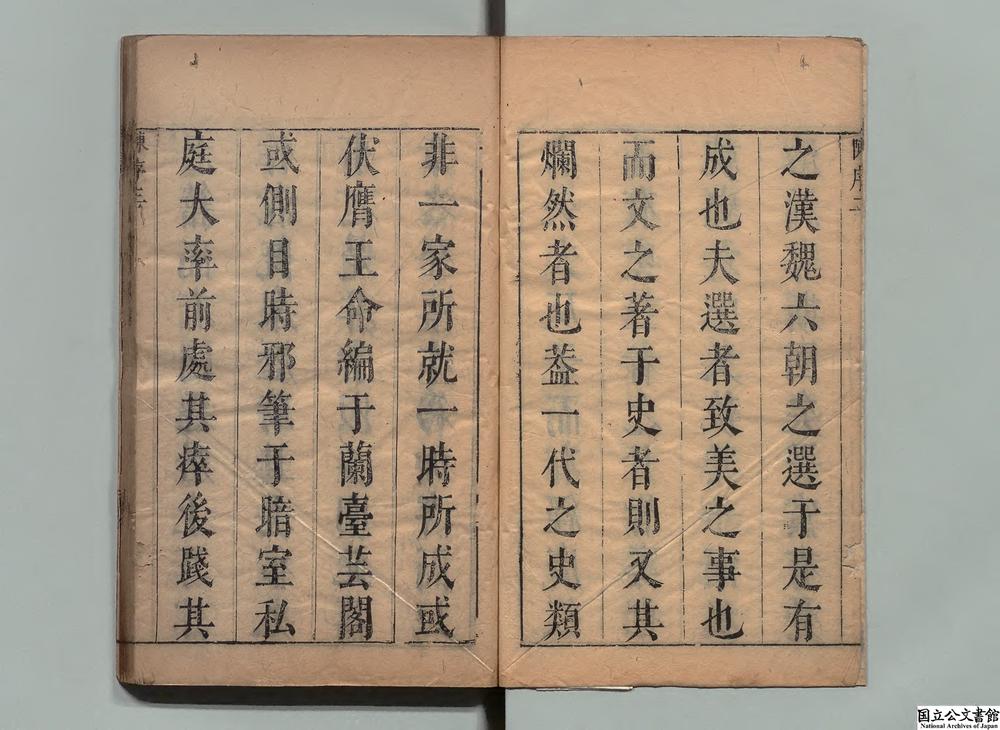 陳序二
之漢魏六朝之選于是有
成也夫選者致美之事也
而文之著于史者則又其
爛然者也蓋一代之史類
非一家所就一時所成或
伏膺王命編于蘭臺芸閣
或側目時邪筆于暗室私
庭大率前處其瘁後踐其
陳序三
国立公文書館
National Archives of Japan